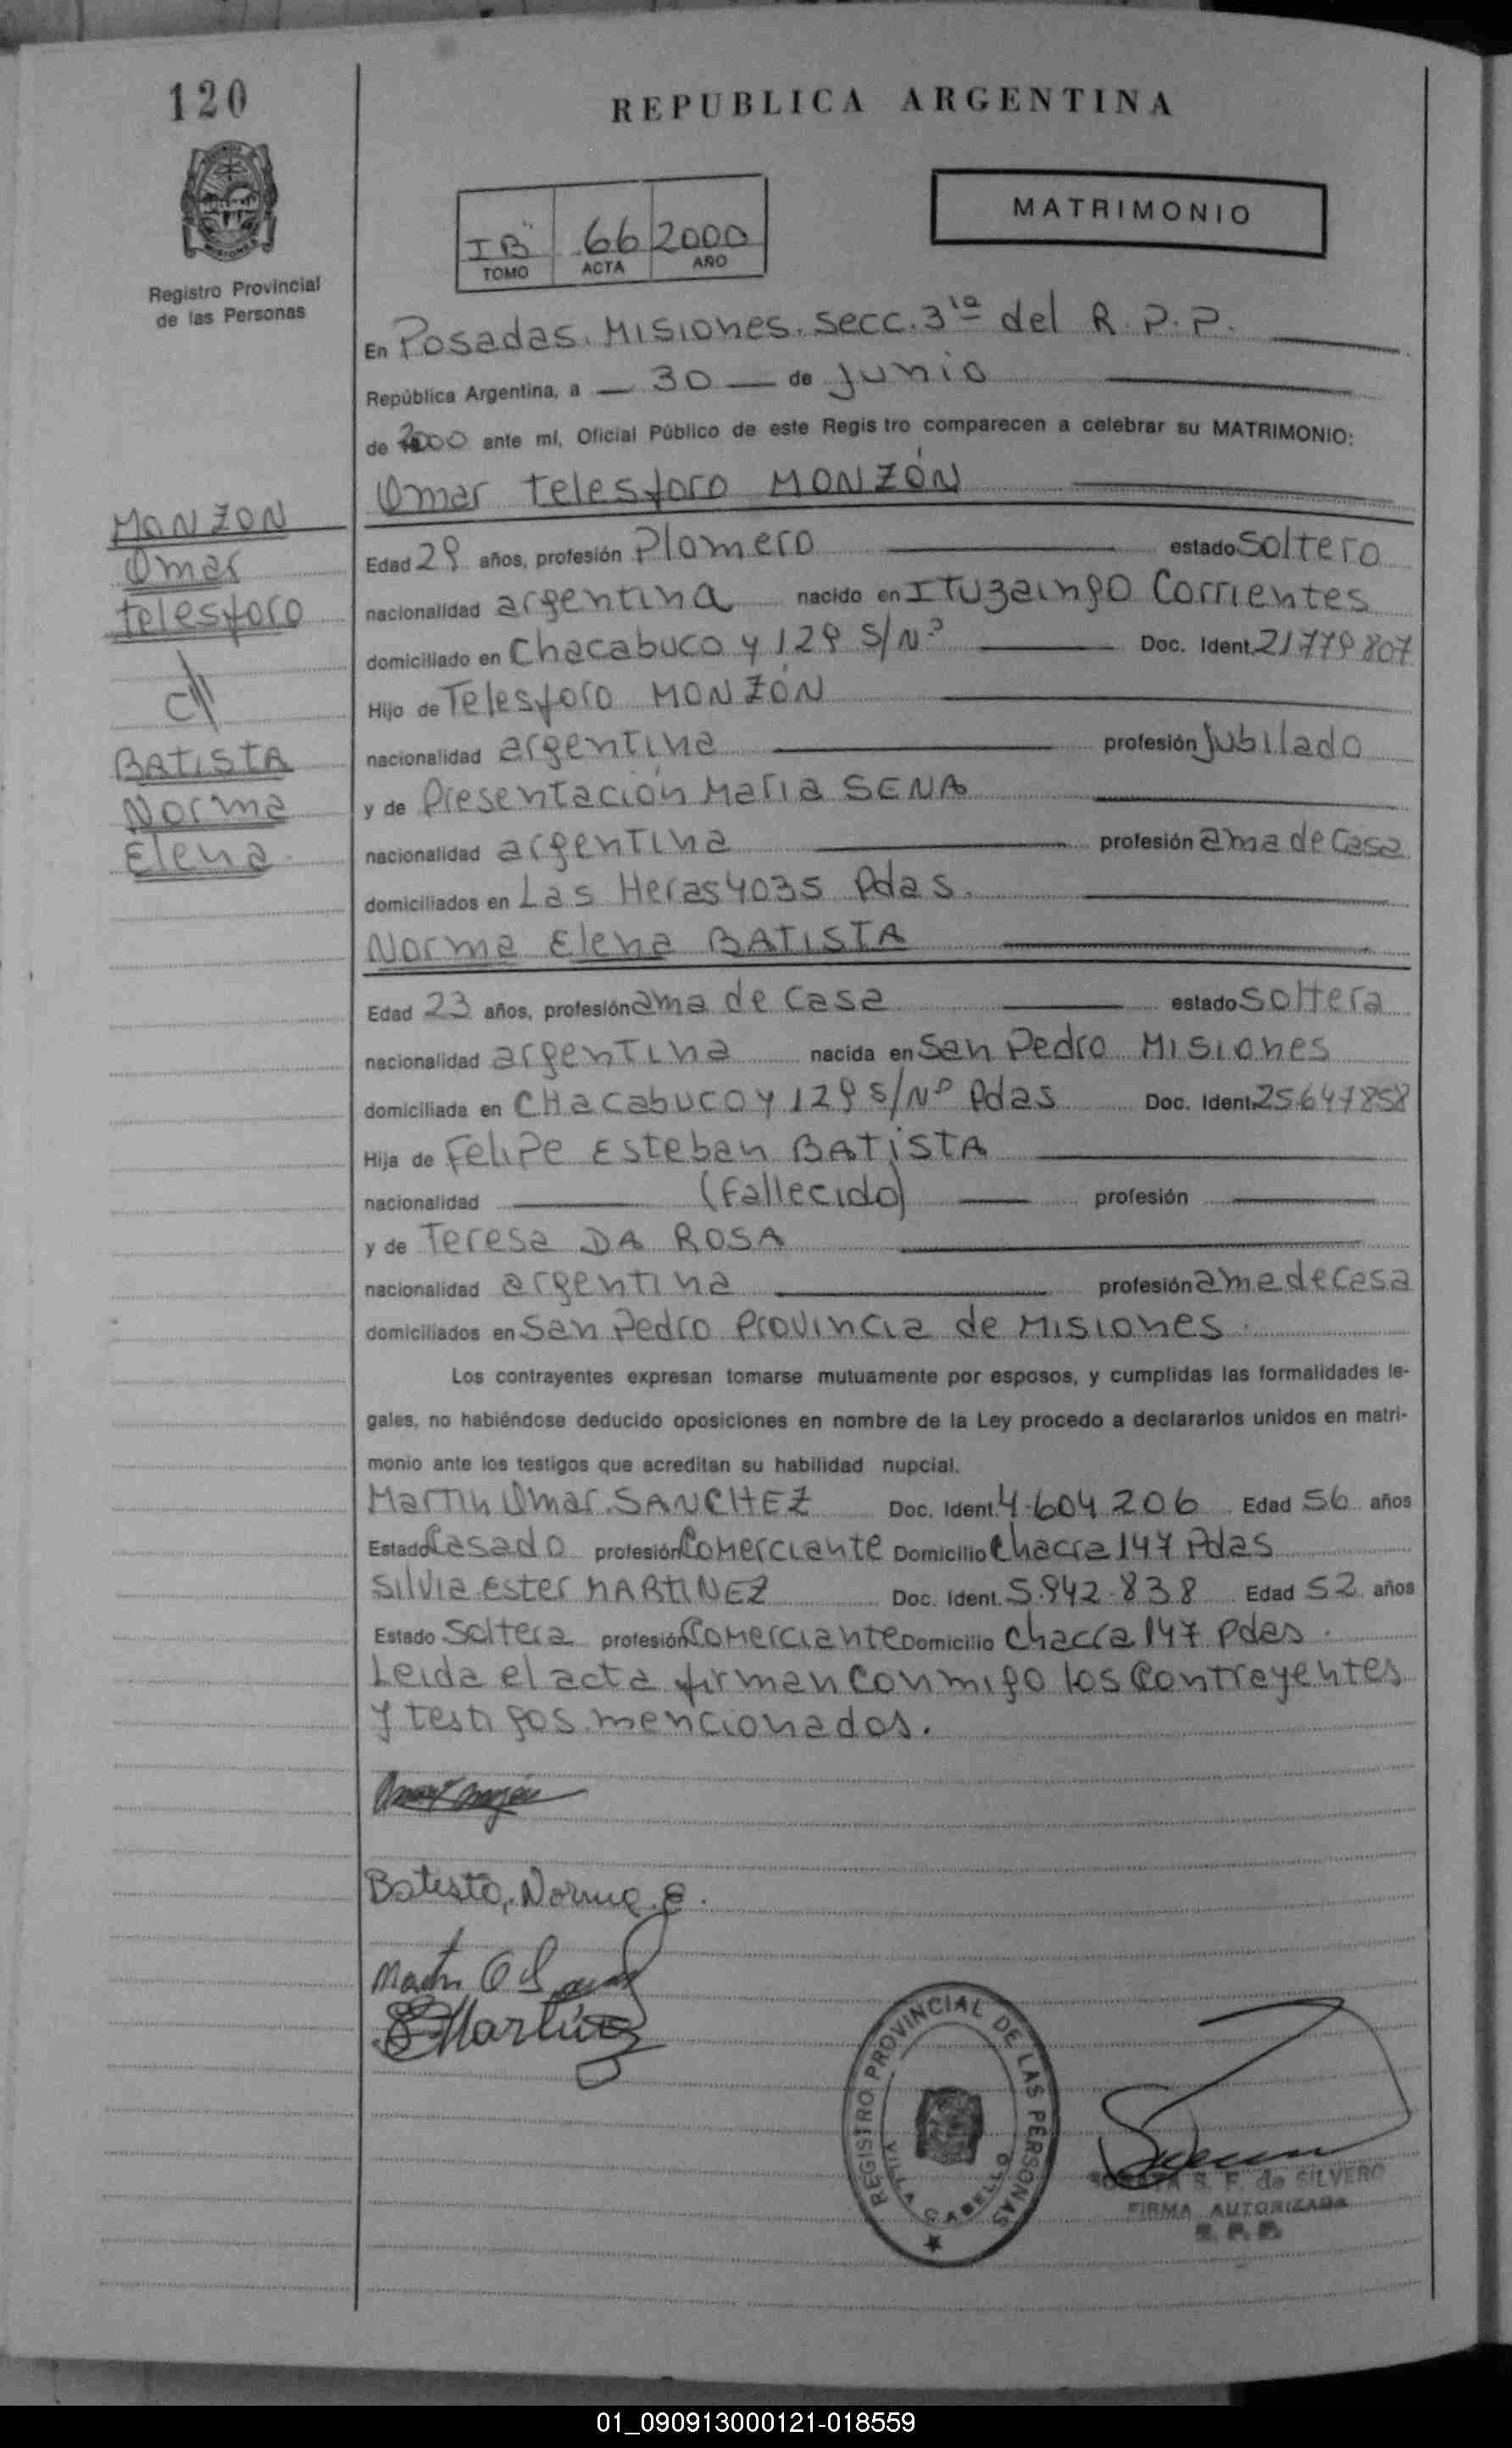 120
REPUBLICA ARGENTINA
MATRIMONIO
IB" 66 2000
TOMO ACTA AÑO
Registro Provincial
de las Personas
En Posadas. Misiones. Secc. 3ra del R.P.P.
República Argentina, a 30 de Junio
de 2000 ante mí, Oficial Público de este Registro comparecen a celebrar su MATRIMONIO:
Omar Telesforo MONZÓN
MONZON
Omar
Telesforo
c//
BATISTA
Norma
Elena
Edad 29 años, profesión Plomero estado Soltero
nacionalidad argentina nacido en Ituzaingo Corrientes
domiciliado en Chacabuco y 129 S/Nº Doc. Ident. 21779807
Hijo de Telesforo MONZÓN
nacionalidad argentina profesión Jubilado
y de Presentación Maria SENA
nacionalidad argentina profesión ama de casa
domiciliados en Las Heras 4035 Pdas.
Norma Elena BATISTA
Edad 23 años, profesión ama de casa estado Soltera
nacionalidad argentina nacida en San Pedro Misiones
domiciliada en Chacabuco y 129 S/Nº Pdas Doc. Ident. 25647858
Hija de Felipe Esteban BATISTA
nacionalidad (Fallecido) profesión
y de Teresa DA ROSA
nacionalidad argentina profesión ama de casa
domiciliados en San Pedro Provincia de Misiones.
Los contrayentes expresan tomarse mutuamente por esposos, y cumplidas las formalidades le-
gales, no habiéndose deducido oposiciones en nombre de la Ley procedo a declararlos unidos en matri-
monio ante los testigos que acreditan su habilidad nupcial.
Martin Omar SANCHEZ Doc. Ident. 4.604.206 Edad 56 años
Estado Casado profesión Comerciante Domicilio Chacra 147 Pdas
Silvia Ester MARTINEZ Doc. Ident. 5.942.838 Edad 52 años
Estado Soltera profesión Comerciante Domicilio Chacra 147 Pdas.
Leida el acta firman conmigo los contrayentes
y testigos mencionados.
Batista, Norma E.
Martin O S
S Martinez
REGISTRO PROVINCIAL DE LAS PERSONAS
VILLA CABELLO
S. F. de SILVERO
FIRMA AUTORIZADA
R. P. P.
01_090913000121-018559